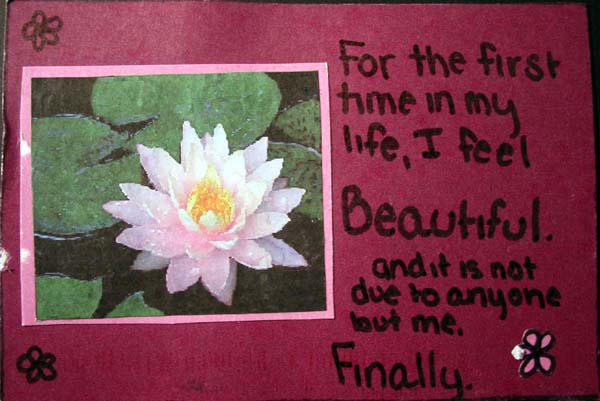 For the first
time in my
life, I feel
Beautiful.
and it is not
due to anyone
but me.
Finally.